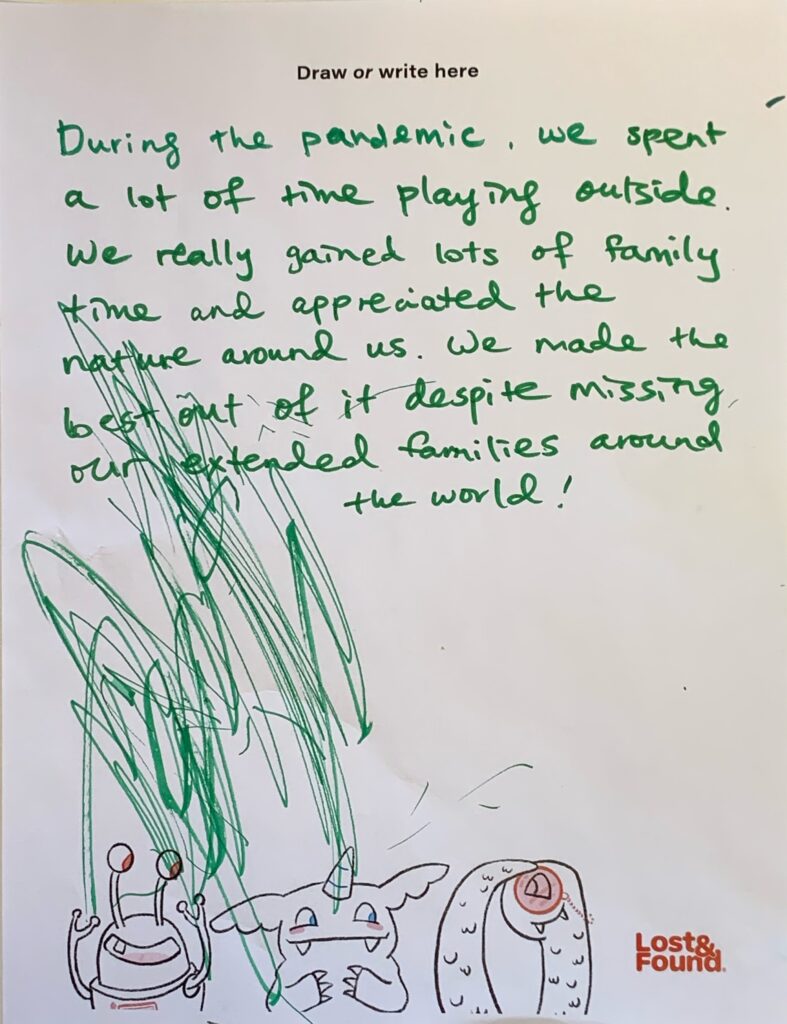 Draw or write here
During the pandemic, we spent
a lot of time playing outside.
We really gained lots of family
time and appreciated the
nature around us. We made the
best out of it despite missing
our extended families around
the world!
Lost&
Found.